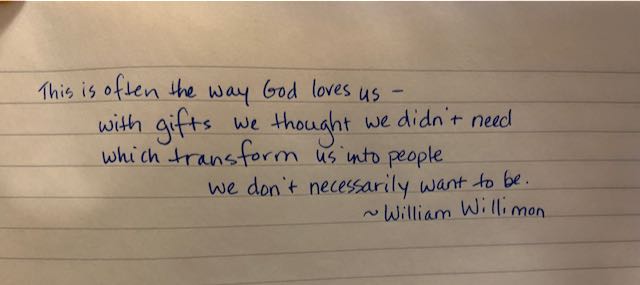 This is often the way God loves us –
with gifts we thought we didn't need
which transform us into people
we don't necessarily want to be.
~ William Willimon